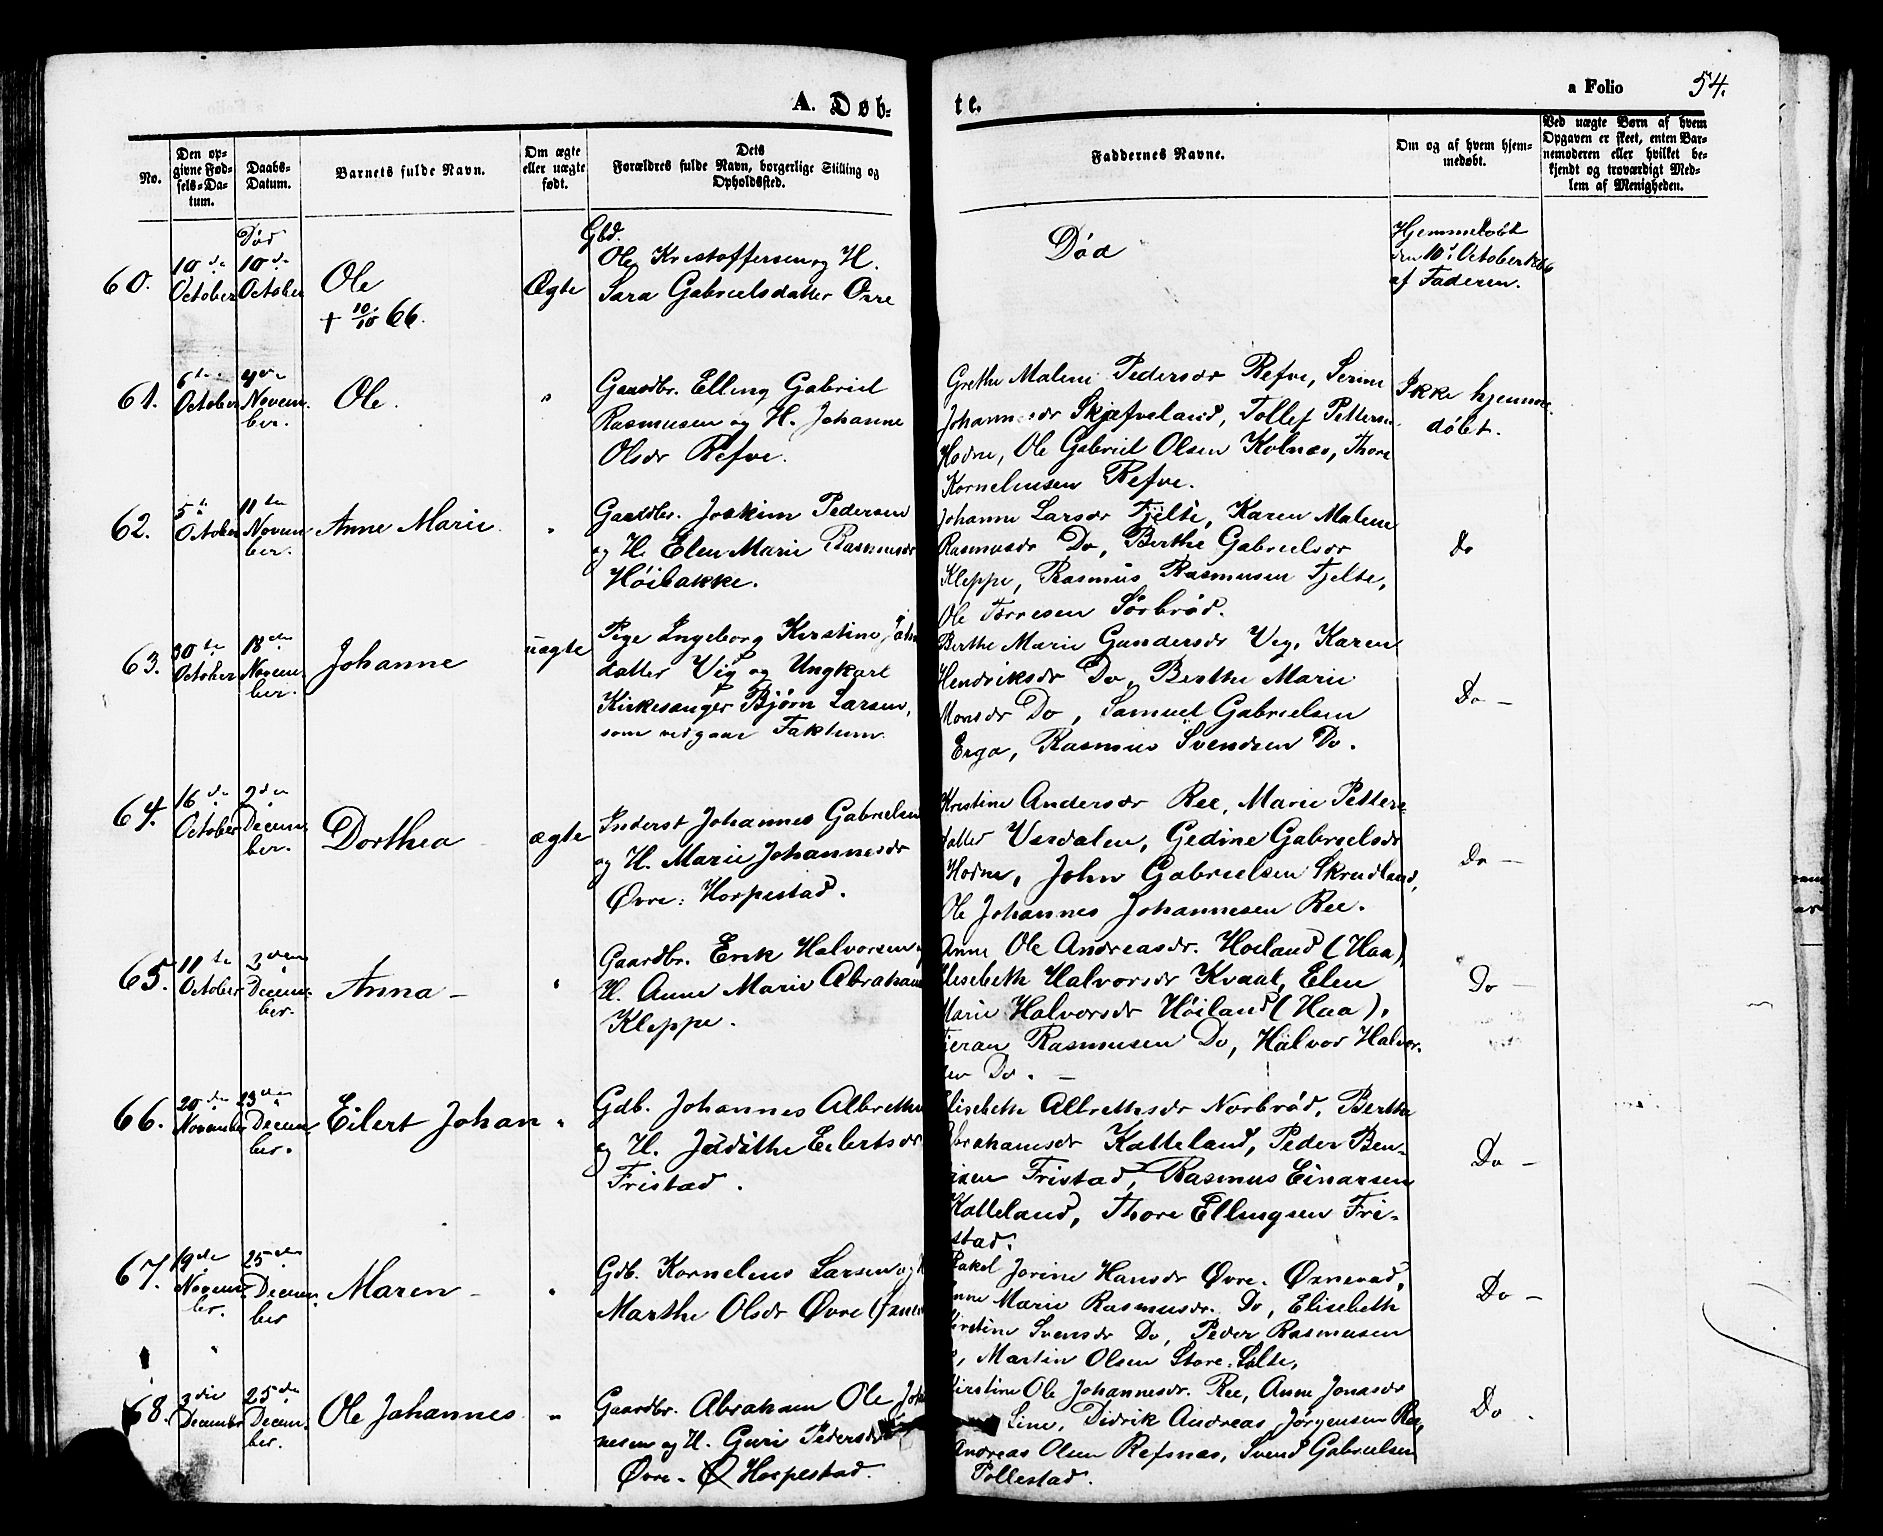 A. Døb-
te.
a Folio 54.
No.
Den op-
givne Fød-
sels-Da-
tum.
Daabs-
Datum.
Barnets fulde Navn.
Om ægte
eller uægte
født.
Dets
Forældres fulde Navn, borgerlige Stilling og
Opholdssted.
Faddernes Navne.
Om og af hvem hjem-
medøbt.
Ved uægte Børn af hvem
Opgaven er skeet, enten Bar-
nemoderen eller hvilket be-
kjendt og troværdigt Med-
lem af Menigheden.
60.
10de
October
Død
10de
October
Ole
+ 10/10 66.
Ægte
Gbd.
Ole Kristoffersen og H.
Sara Gabrielsdatter Orre
Død
Hjemmedøbt
den 10d October 1866
af Faderen.
61.
6te
October
4de
Novem-
ber.
Ole.
"
Gaardbr. Elling Gabriel
Rasmusen og H. Johanne
Olsdr Refve.
Grethe Malene Pedersdr Refve, Serine
Johannesdr Skjæfveland, Tollef Pettersen
Hodne, Ole Gabriel Olsen Kolnæs, Thore
Korneliussen Refve.
Ikke hjemme-
døbt.
62.
5te
October
11te
Novem-
ber.
Anne Marie
"
Gaardbr. Joakim Pedersen
og H. Elen Marie Rasmusdr
Høibakke.
Johanne Larsdr Fjelte, Karen Malene
Rasmusdr Do, Berthe Gabrielsdr
Kleppe, Rasmus Rasmusen Fjelte,
Ole Torresen Sørbrød.
Do
63.
30te
October
18de
Novem-
ber.
Johanne
uægte
Pige Ingeborg Kirstine
datter Vig og Ungkarl
Kirkesanger Bjørn Larsen,
som vedgaar Faktum.
Berthe Marie Gundersdr Vig, Karen
Hendriksdr Do, Berthe Marie
Monsdr Do, Samuel Gabrielsen
Erga, Rasmus Svendsen Do.
Do -
64.
16de
October
2den
Decem-
ber.
Dorthea
ægte
Inderst Johannes Gabrielsen
og H. Marie Johannesdr
Øvre: Horpestad.
Kristine Andersdr Ree, Marie Petters-
datter Verdalen, Gedine Gabrielsdr
Hodne, John Gabrielsen Skrudland,
Ole Johannes Johannesen Ree.
Do -
65.
11te
October
2den
Decem-
ber.
Anna -
"
Gaardbr. Erik Halvorsen
H. Anne Marie Abraham
Kleppe.
Anne Ole Andreasdr. Hoiland (Haa),
Elisebeth Halvorsdr Kvaal, Elen
Marie Halvorsdr Høiland (Haa),
Rasmusen Do, Halvor Halvor-
sen Do. -
Do -
66.
20de
November
23den
Decem-
ber.
Eilert Johan
"
Gdb. Johannes Albrethsen
og H. Jedithe Eilertsdr
Fristad.
Elisebeth Albrethsdr Norbrød, Berthe
Abrahamsdr Katteland, Peder Ben-
tsen Fristad, Rasmus Einarsen
Katteland, Thore Ellingsen Fri-
stad.
Do -
67.
19de
Novem-
ber.
25de
Decem-
ber
Maren -
"
Gdb. Kornelius Larsen og H
Marthe Olsdr Øvre
Rakel Jorine Hansdr Øvre. Øxnevad,
Anne Marie Rasmusdr. Do, Elisebeth
Kirstine Svensdr Do, Peder Rasmusen
Martin Olsen Store-Salte,
Do -
68.
3die
December
25de
Decem-
ber.
Ole Johannes
"
Gaardbr. Abraham Ole Joh
nesen og H. Guri Pedersdr
Øvre. Ø Horpestad.
Kirstine Ole Johannesdr. Ree, Anne Jonasdr
Line, Didrik Andreas Jørgensen Ree,
Andreas Olsen Refsnæs, Svend Gabrielsen
Tollestad.
Do .